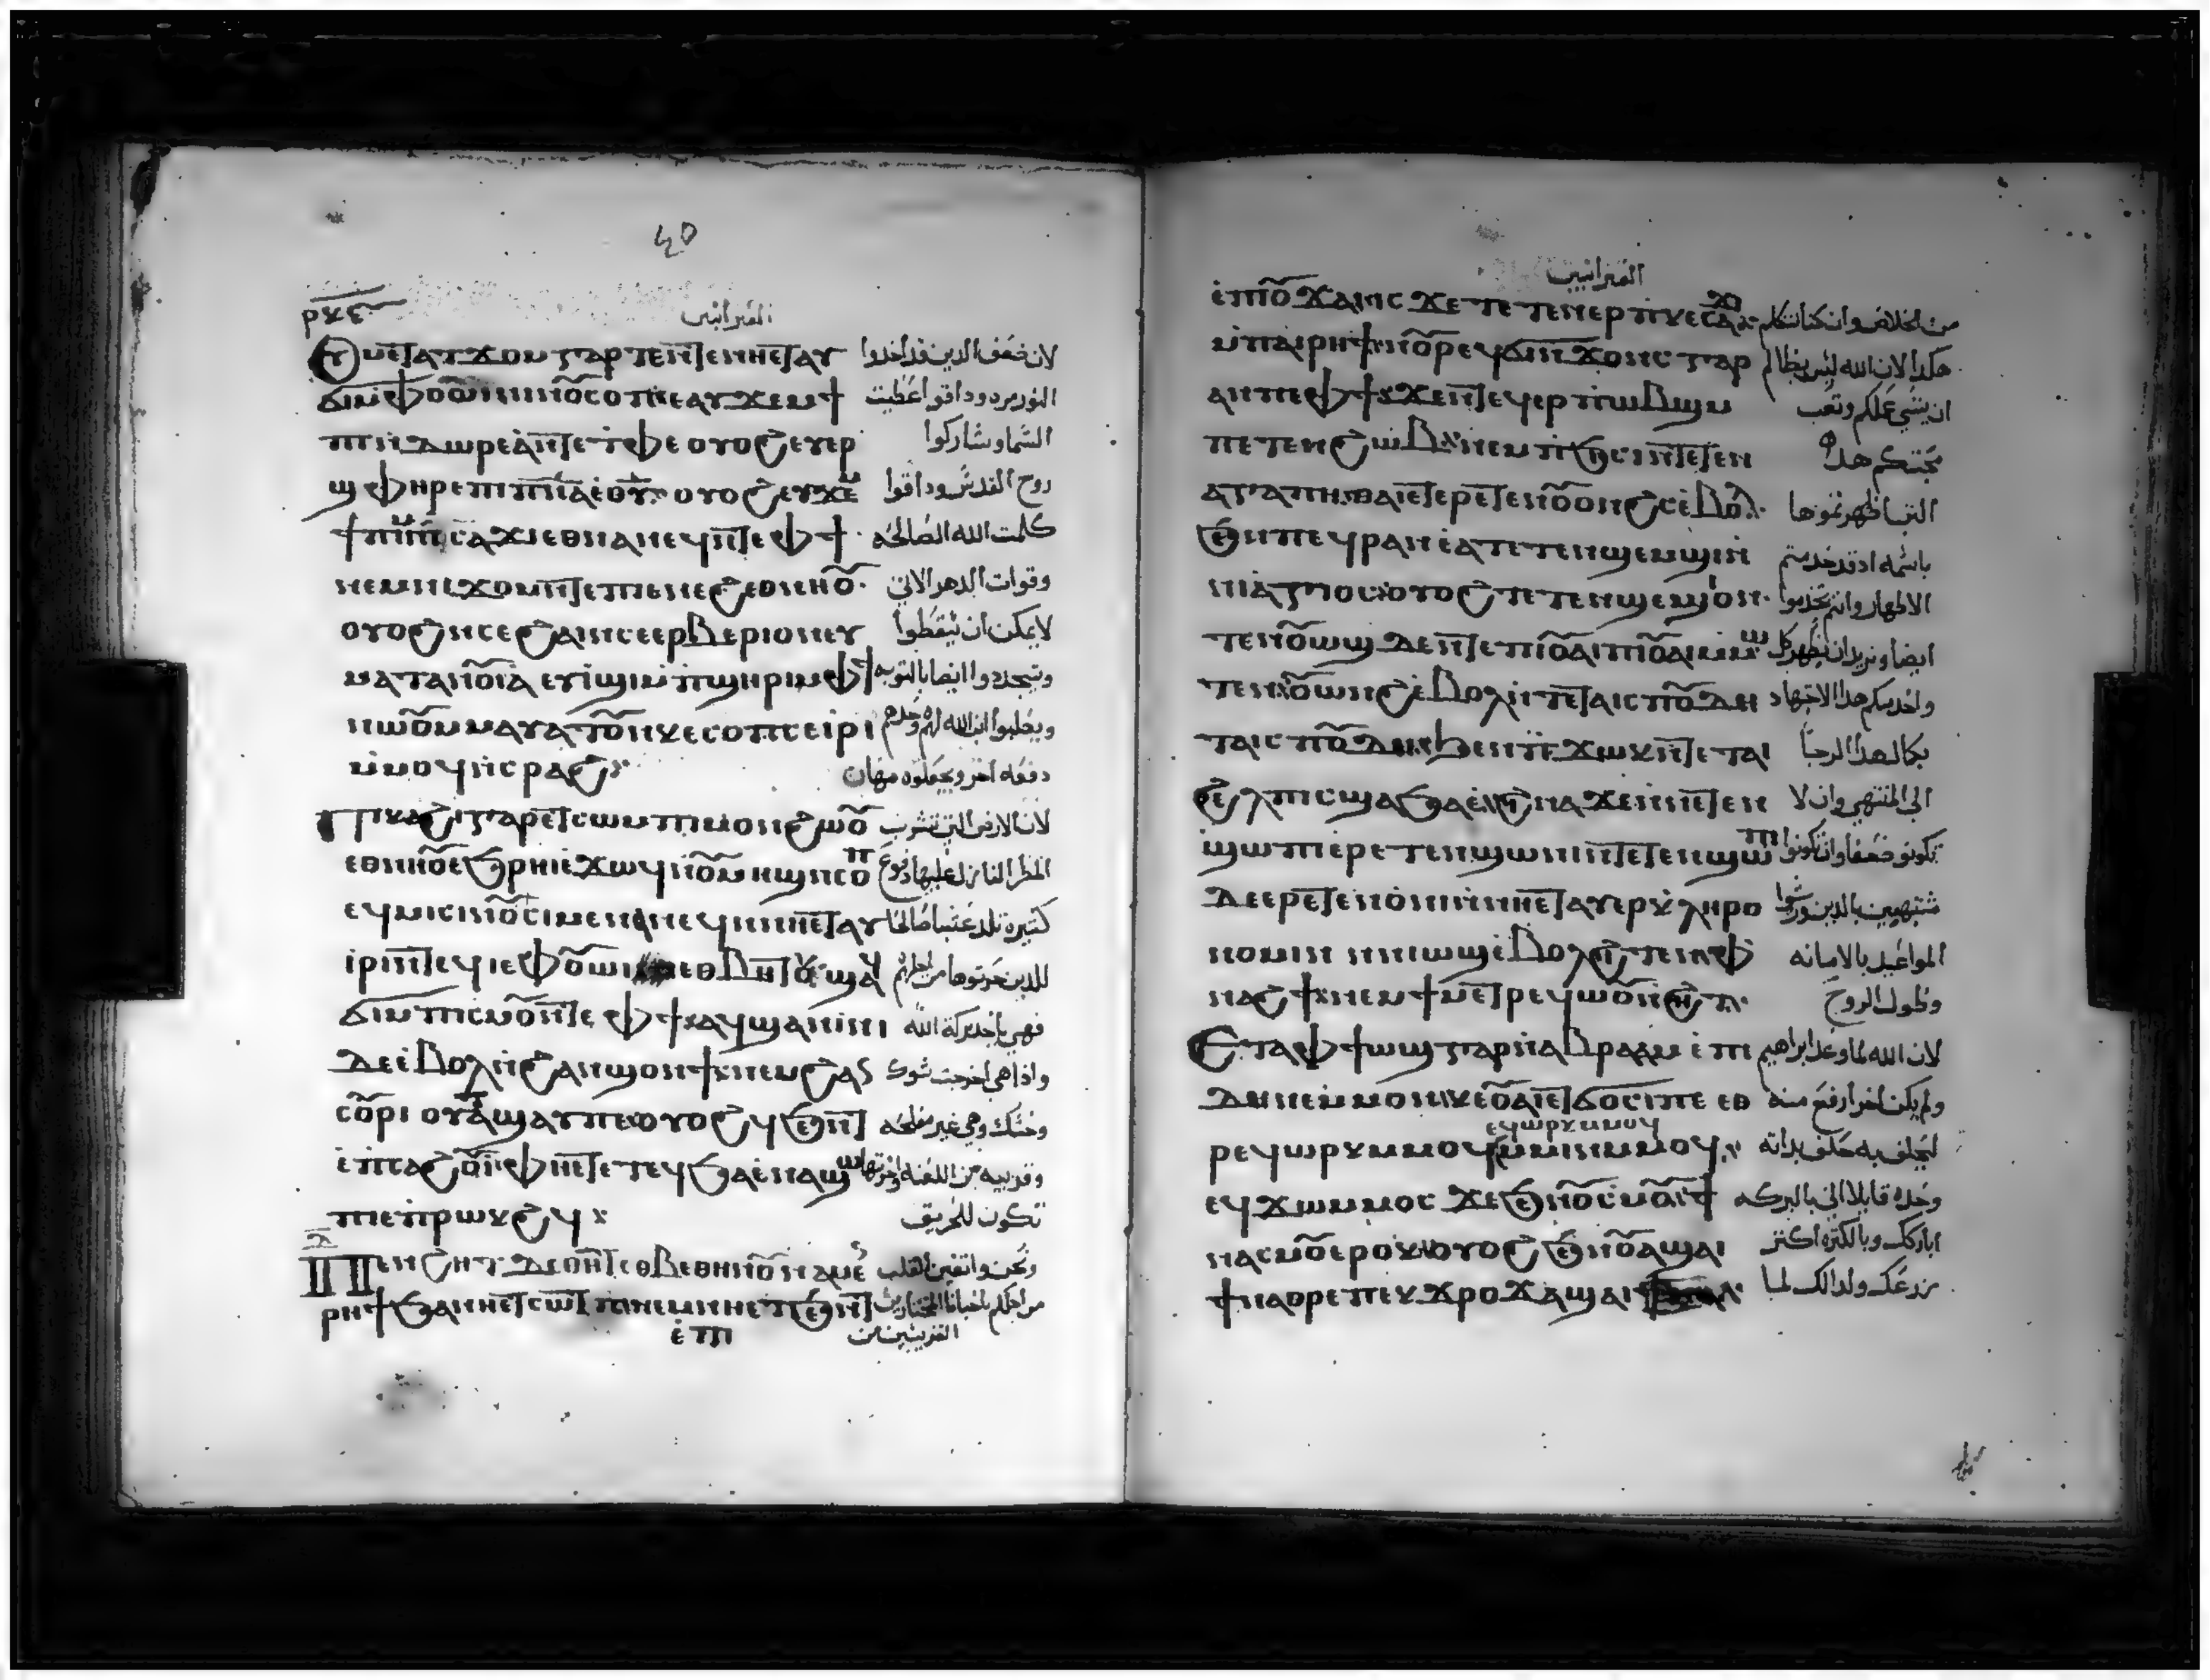 العبرانيين
ⲟⲩⲙⲉⲧⲁⲧϫⲟⲙ ⲅⲁⲣ ⲧⲉ ⲛⲧⲉ ⲛⲏⲉⲧⲁⲩ لان ضعف الدين قد اخدوا
ϭⲓⲙⲫⲟⲩⲱⲓⲛⲓ ⲛⲟⲩⲥⲟⲡ ⲉⲁⲩϫⲉⲙϯ النور مره وداقوا عطيت
ⲡⲓ ⲛⲇⲱⲣⲉⲁ ⲛⲧⲉ ⲧⲫⲉ ⲟⲩⲟϩ ⲉⲩⲉⲣ السما وشاركوا
ϣⲫⲏⲣ ⲉⲡⲓⲡⲛⲁ ⲉⲑⲩ ⲟⲩⲟϩ ⲉⲩϫⲉ روح القدس وداقوا
ϯⲡⲓ ⲙⲡⲥⲁϫⲓ ⲉⲑⲛⲁⲛⲉϥ ⲛⲧⲉ ⲫϯ كلمت الله الصالحه
ⲛⲉⲙ ⲛⲓϫⲟⲙ ⲛⲧⲉ ⲡⲓⲉⲛⲉϩ ⲉⲑⲛⲏⲟⲩ وقوات الدهر الاتي
ⲟⲩⲟϩ ⲛⲥⲉϩⲉⲓ ⲛⲥⲉⲉⲣⲃⲉⲣⲓ ⲟⲛ ⲉⲩ لا يمكن ان يسقطوا
ⲙⲉⲧⲁⲛⲟⲓⲁ ⲉⲩⲓϣⲓ ⲙⲡϣⲏⲣⲓ ⲙⲫϯ ويتجددوا ايضا بالتوبه
ⲛⲱⲟⲩ ⲙⲙⲁⲩⲁⲧⲟⲩ ⲛⲕⲉⲥⲟⲡ ⲥⲉⲓⲣⲓ ويصلبوا ابن الله لهم وحدهم
ⲙⲙⲟϥ ⲛⲥⲣⲁϩ دفعه اخر ويجعلوه مهان
ⲡⲓⲕⲁϩⲓ ⲅⲁⲣ ⲉⲧⲥⲱ ⲙⲡⲓⲙⲟⲩⲛϩⲱⲟⲩ لان الارض التي تشرب
ⲉⲑⲛⲏⲟⲩ ⲉϩⲣⲏⲓ ⲉϫⲱϥ ⲛⲟⲩⲙⲏϣ ⲛⲥⲟⲡ المطر النازل عليها دفوع
ⲉϥⲙⲓⲥⲓ ⲛⲟⲩⲥⲓⲙ ⲉⲛⲁⲛⲉϥ ⲛⲛⲏⲉⲧⲁⲩ كثيره تلد عشبا صالحا
ⲓⲣⲓ ⲛⲧⲉϥⲓⲉⲫⲟⲩⲱⲓ ⲉⲑⲃⲏⲧⲟⲩ ϣⲁϥ للدين حرثوها من اجلهم
ϭⲓ ⲙⲡⲓⲥⲙⲟⲩ ⲛⲧⲉ ⲫϯ ⲁϥϣⲁⲛⲓⲛⲓ فهي تاخد بركة الله
ⲇⲉ ⲉⲃⲟⲗ ⲛϩⲁⲛϣⲟⲛϯ ⲛⲉⲙ ϩⲁⲥ واذا هي اخرجت شوك
ⲥⲟⲩⲣⲓ ⲟⲩⲁⲧϣⲁⲩ ⲡⲉ ⲟⲩⲟϩ ϥϧⲉⲛⲧ وحسك وهي غير صالحه
ⲉⲡⲥⲁϩⲟⲩⲓ ⲫⲏⲉⲧⲉ ⲧⲉϥϧⲁⲉ ⲛⲁϣⲱ وقريبه من اللعنه واخرتها
ⲡⲓ ⲉⲡⲣⲱⲕϩ تكون للحريق
ⲡⲉⲛϩⲏⲧ ⲇⲉ ⲑⲏⲧ ⲉⲑⲃⲉ ⲑⲏⲛⲟⲩ ⲛⲁⲙⲉⲛ ونحن واتقين القلب
ⲣⲏϯ ϧⲁ ⲛⲏⲉⲧⲥⲱⲧⲡ ⲛⲉⲙ ⲛⲏⲉⲧϧⲉⲛⲧ من اجلكم ياحبانا المختارين
ⲉⲡⲓ القريبين من
العبرانيين
ⲉⲡⲓⲟⲩϫⲁⲓ ⲓⲥϫⲉ ⲧⲉⲧⲉⲛⲉⲣⲡⲕⲉⲥⲁϫⲓ من الخلاص وان كنا نتكلم
ⲙⲡⲁⲓⲣⲏϯ ⲛⲟⲩⲣⲉϥϭⲓⲛϫⲟⲛⲥ ⲅⲁⲣ هكدا لان الله ليس بظالم
ⲁⲛ ⲡⲉ ⲫϯ ϫⲉ ⲛⲧⲉϥⲉⲣⲡⲱⲃϣ ⲙ ان ينسي عملكم وتعب
ⲡⲉⲧⲉⲛϩⲱⲃ ⲛⲉⲙ ⲡϧⲓⲥⲓ ⲛⲧⲉⲧⲉⲛ محبتكم هده
ⲁⲅⲁⲡⲏ ⲑⲁⲓ ⲉⲧⲉⲣⲉⲧⲉⲛⲟⲩⲟⲛϩⲥ ⲉⲃⲟⲗ التي اظهرتموها
ϧⲉⲛ ⲡⲉϥⲣⲁⲛ ⲉⲁⲧⲉⲧⲉⲛϣⲉⲙϣⲓ ⲛ باسمه اد قد خدمتم
ⲛⲓⲁⲅⲓⲟⲥ ⲟⲩⲟϩ ⲧⲉⲧⲉⲛϣⲉⲙϣⲓ ⲟⲛ الاطهار وانتم تخدموا
ⲧⲉⲛⲟⲩⲱϣ ⲇⲉ ⲛⲧⲉ ⲡⲓⲟⲩⲁⲓ ⲡⲓⲟⲩⲁⲓ ⲙⲙⲱ ايضا ونريد ان يظهر كل
ⲧⲉⲛ ⲟⲩⲱⲛϩ ⲉⲃⲟⲗ ⲛⲧⲉⲧⲁⲓⲥⲡⲟⲩⲇⲏ واحد منكم هدا الاجتهاد
ⲧⲁⲓⲥⲡⲟⲩⲇⲏ ϧⲉⲛ ⲡϫⲱⲕ ⲛⲧⲉ ⲧⲁⲓ بكمال هدا الرجا
ϩⲉⲗⲡⲓⲥ ϣⲁ ϧⲁⲉ ϩⲓⲛⲁ ϫⲉ ⲛⲛⲉⲧⲉⲛ الي المنتهي وان لا
ϣⲱⲡⲓ ⲉⲣⲉⲧⲉⲛϣⲱⲛⲓ ⲛⲧⲉⲧⲉⲛϣⲱⲡⲓ تكونو ضعفا وان تكونوا
ⲇⲉ ⲉⲣⲉⲧⲉⲛⲟⲛⲓ ⲛⲛⲏⲉⲧⲁⲩⲉⲣⲕⲗⲏⲣⲟ متشبهين بالدين ورثوا
ⲛⲟⲙⲓⲛ ⲛⲛⲓⲱϣ ⲉⲃⲟⲗϩⲓⲧⲉⲛ ⲫ المواعيد بالامانه
ⲛⲁϩϯ ⲛⲉⲙ ϯⲙⲉⲧⲣⲉϥⲱⲟⲩⲛϩⲏⲧ وطول الروح
ⲉⲧⲁ ⲫϯ ⲱϣ ⲅⲁⲣ ⲛⲁⲃⲣⲁⲁⲙ ⲉⲡⲓ لان الله لما وعد ابراهيم
ⲇⲏ ⲛⲉ ⲙⲙⲟⲛ ⲕⲉⲟⲩⲁⲓ ⲉⲧϭⲟⲥⲓ ⲡⲉ ⲉⲑ ولم يكن اخر ارفع منه
ⲉϥⲱⲣⲕ ⲙⲙⲟϥ
ⲣⲉϥⲱⲣⲕ ⲙⲙⲟϥ ⲙⲙⲓⲛ ⲙⲙⲟϥ ليحلف به حلف بداته
ⲉϥϫⲱ ⲙⲙⲟⲥ ϫⲉ ϧⲉⲛ ⲟⲩⲥⲙⲟⲩ ϯ وحده قايلا اني بالبركه
ⲛⲁⲥⲙⲟⲩ ⲉⲣⲟⲕ ⲟⲩⲟϩ ϧⲉⲛ ⲟⲩⲁϣⲁⲓ اباركك وبالكتره اكتر
ϯⲛⲁⲑⲣⲉ ⲡⲉⲕϫⲣⲟϫ ⲁϣⲁⲓ زرعك ولدالك لما